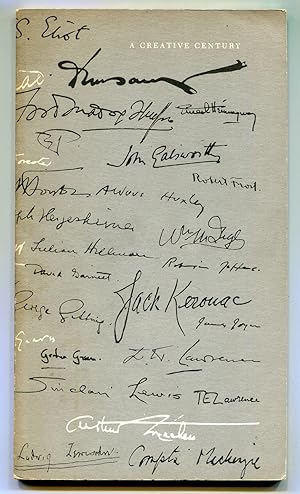 S. Eliot
A CREATIVE CENTURY
Ford Madox Hueffer
Ernest Hemingway
John Galsworthy
Robert Frost.
Aldous Huxley
ph Hergesheimer
Lillian Hellman
Robinson Jeffers.
David Garnett
Jack Kerouac
George Gissing
James Joyce
Graham Greene
D. H. Lawrence
Sinclair Lewis
T E Lawrence
Arthur Machen
Ludwig Lewisohn
Compton Mackenzie